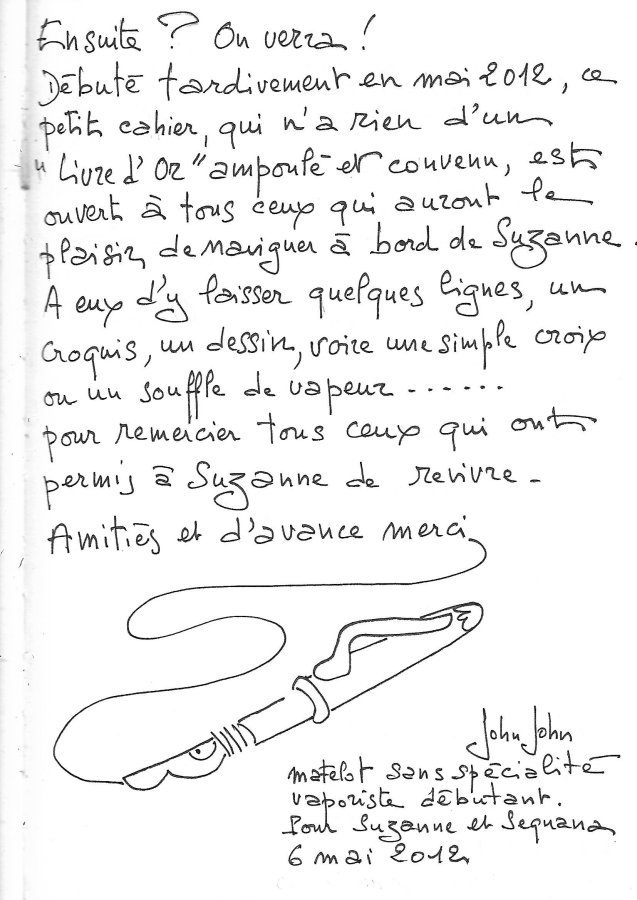 Ensuite ? On verra !
Débuté tardivement en mai 2012, ce
petit cahier, qui n'a rien d'un
"Livre d'Or" ampoulé et convenu, est
ouvert à tous ceux qui auront le
plaisir de naviguer à bord de Suzanne.
A eux d'y laisser quelques lignes, un
croquis, un dessin, voire une simple croix
ou un souffle de vapeur .......
pour remercier tous ceux qui ont
permis à Suzanne de revivre -
Amitiés et d'avance merci
John John
matelot sans spécialité
vaporiste débutant.
Pour Suzanne et Sequana
6 mai 2012